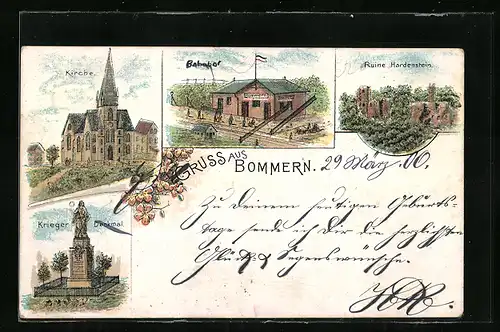 Kirche.
Bahnhof
Ruine Hardenstein.
GRUSS AUS
BOMMERN. 29 März 00.
Zu Deinem heutigen Geburts-
tage sende ich Dir die herzlichsten
Glück & Segenswünsche.
Krieger Denkmal